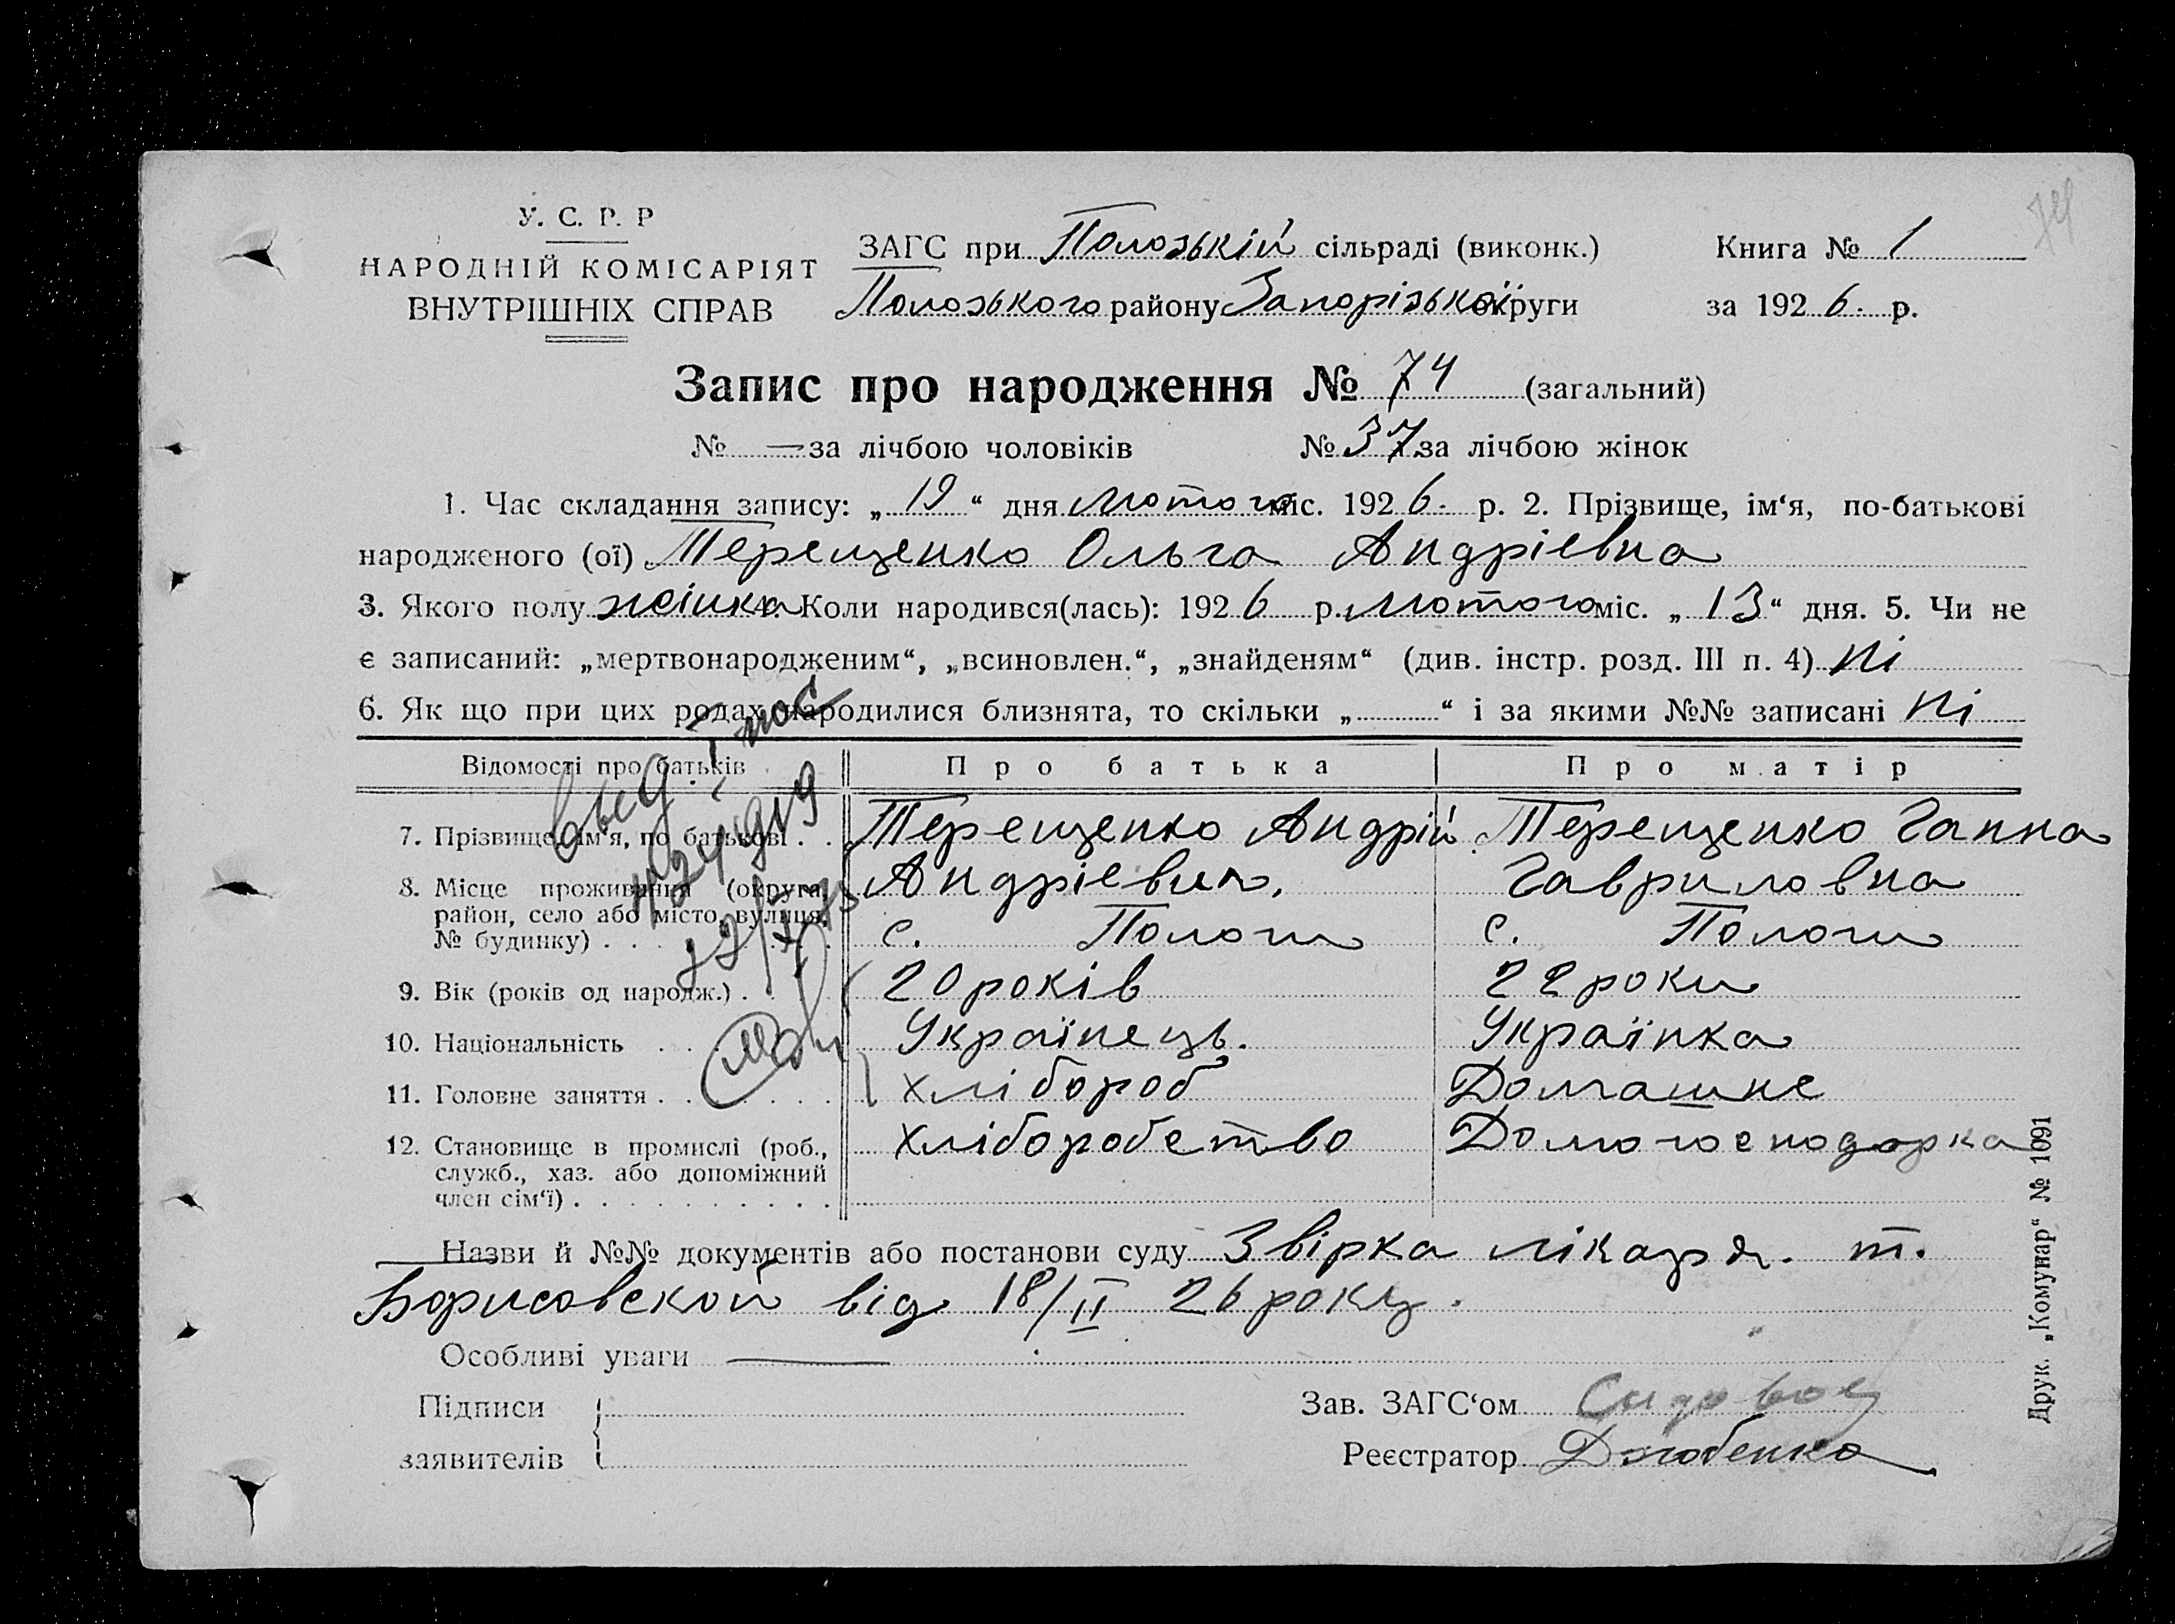 74
У. С. Р. Р
НАРОДНІЙ КОМІСАРІЯТ
ВНУТРІШНІХ СПРАВ
ЗАГС при Пологзькій сільраді (виконк.) Книга № 1
Пологзького району Запорізької округи за 1926. р.
Запис про народження № 74 (загальний)
№ — за лічбою чоловіків № 37 за лічбою жінок
1. Час складання запису: „19“ дня Лютого міс. 1926. р. 2. Прізвище, ім‘я, по-батькові
народженого (ої) Терещенко Ольга Андріевна
3. Якого полу жінка Коли народився(лась): 1926 р. Лютого міс. „13“ дня. 5. Чи не
є записаний: „мертвонародженим“, „всиновлен.“, „знайденям“ (див. інстр. розд. III п. 4) Ні
6. Як що при цих родах народилися близнята, то скільки „ “ і за якими №№ записані Ні
Відомості про батьків Про батька Про матір
7. Прізвище, ім‘я, по батькові . . Терещенко Андрій Терещенко Ганна
Андріевич. Гавриловна
8. Місце проживання (округа,
район, село або місто, вулиця,
№ будинку) . . . с. Пологи с. Пологи
9. Вік (років од народж.) . . 20 років 22 роки
10. Національність . . . Українець. Українка
11. Головне заняття . . . . . . . Хлібороб Домашне
12. Становище в промислі (роб.,
служб., хаз. або допоміжний
член сім‘ї) . . . . . . . . . . Хліборобство Домогосподарка
Назви й №№ документів або постанови суду Звірка лікаря. т.
Борисовской від 18/II 26 року.
Особливі уваги —
Підписи
заявителів
Зав. ЗАГС‘ом
Реєстратор
Друк. „Комунар“ № 1091